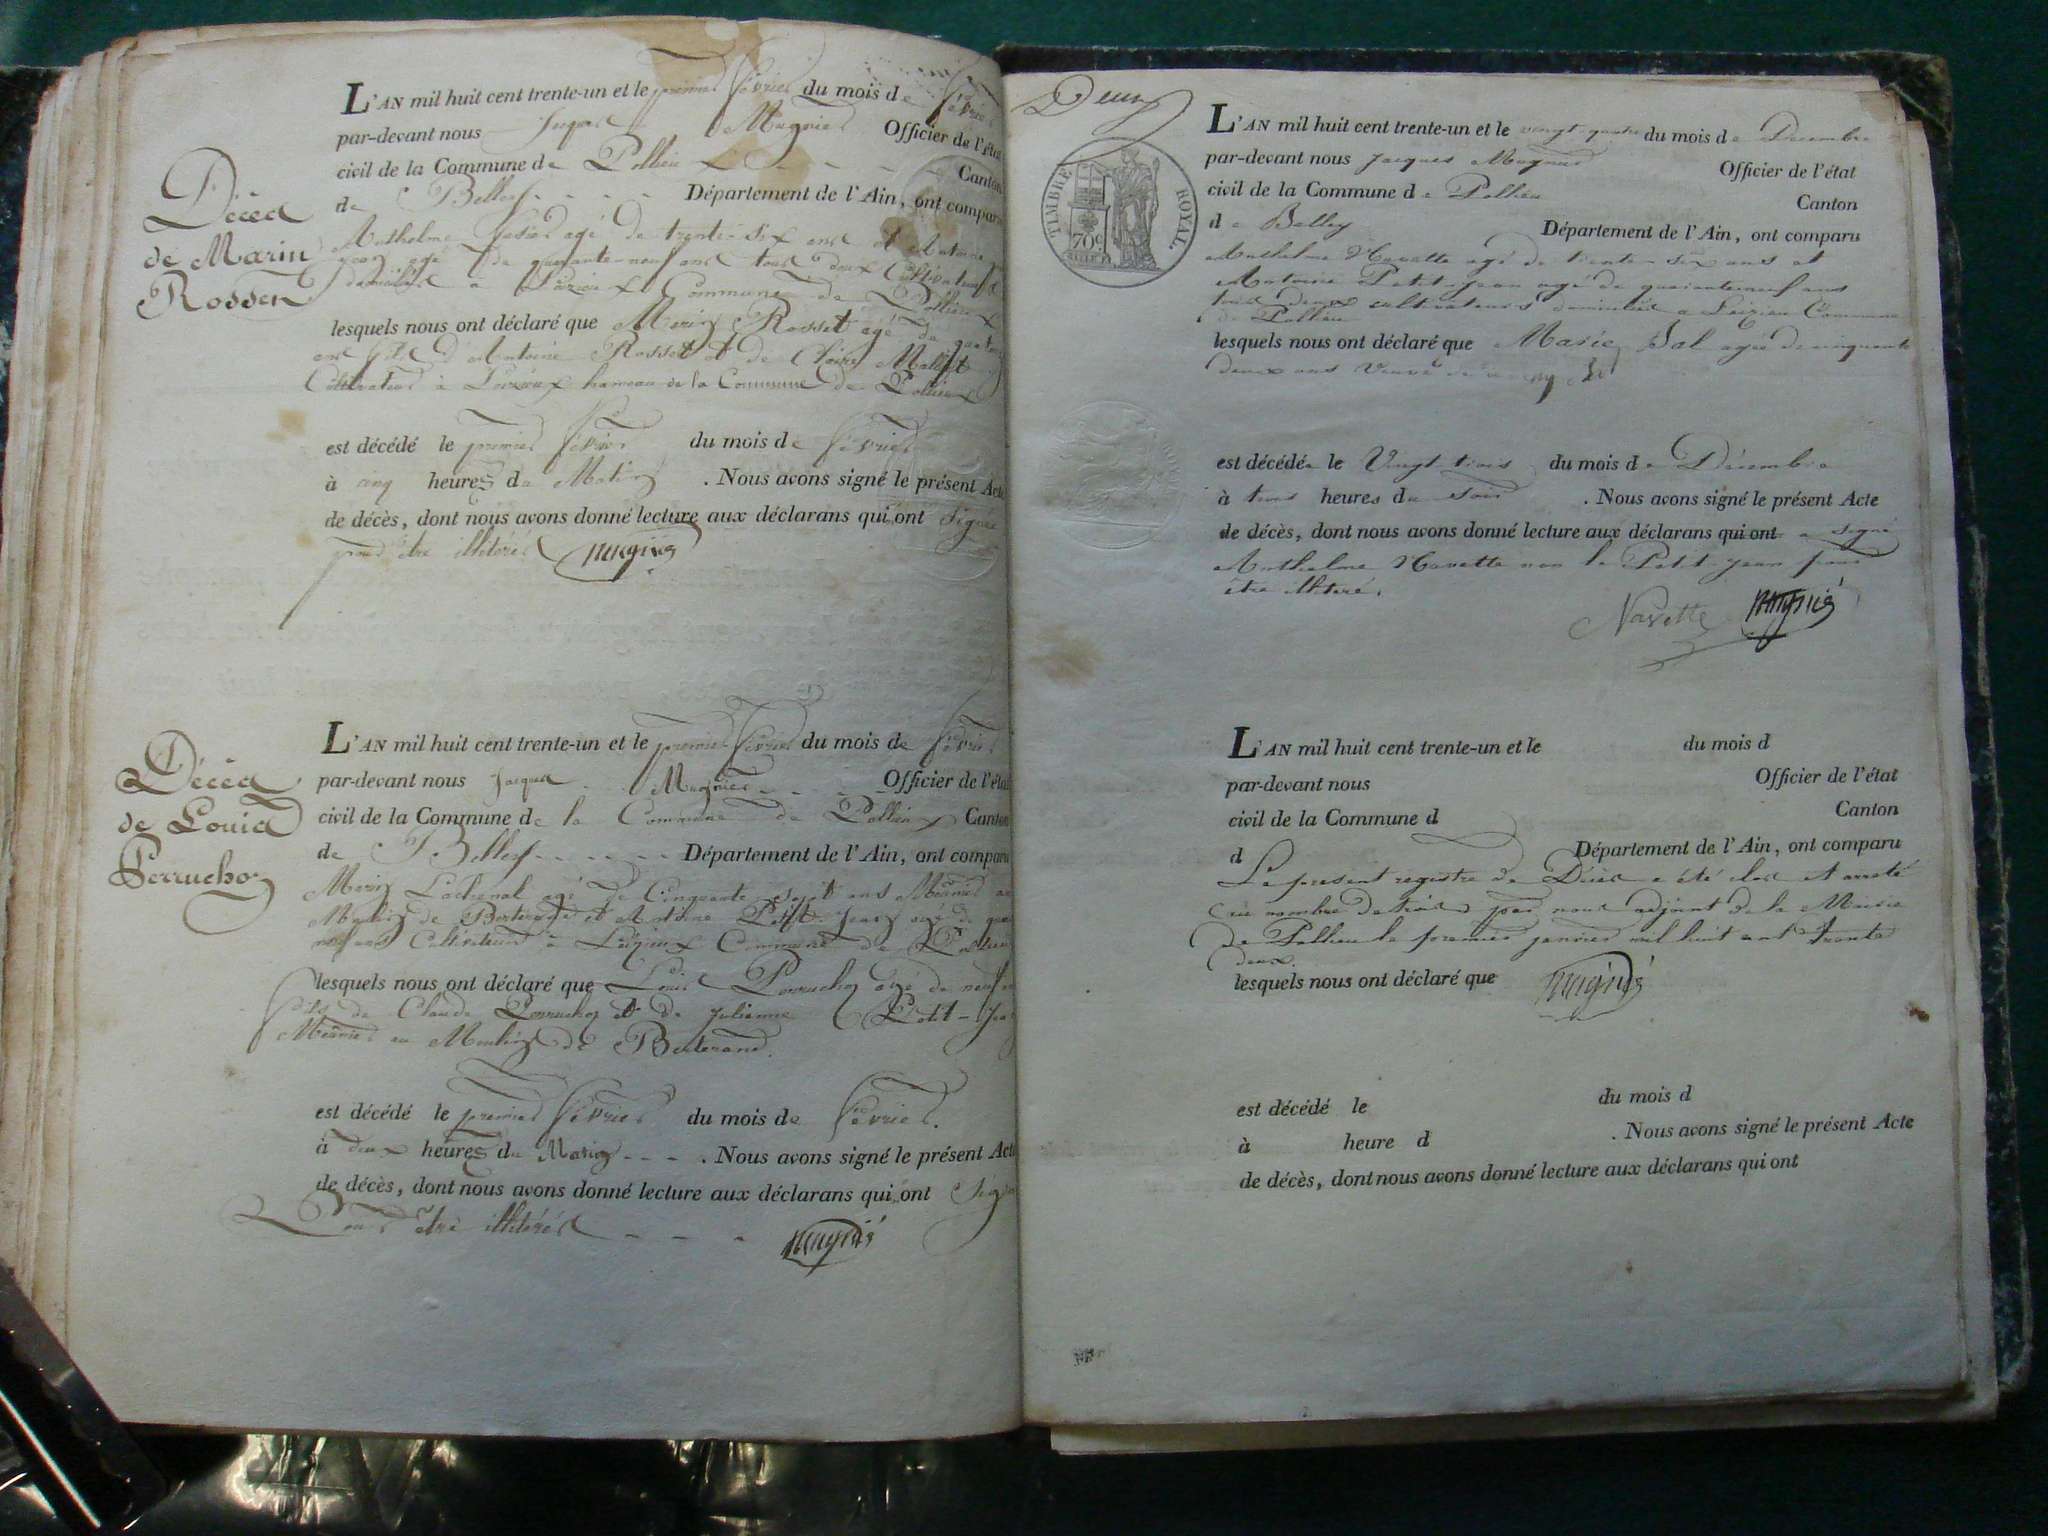 Décès
de Marin
Rosset
L'AN mil huit cent trente-un et le premier février du mois de février
par-devant nous Jacques Mugnier Officier de l'état
civil de la Commune de Pollieu Canton
de Belley Département de l'Ain, ont comparu
Anthelme agé de trente-six ans et Antoine
agé de quarante-neuf ans tous deux Cultivateurs
à Commune de Pollieu
lesquels nous ont déclaré que Marin Rosset agé de quatre
ans fils d'Antoine Rosset et de Claire
Cultivateur à hameau de la Commune de Pollieu
est décédé le premier février du mois de février
à cinq heures du Matin . Nous avons signé le présent Acte
de décès, dont nous avons donné lecture aux déclarans qui ont signé
pour être illitérés Mugnié
Décès
de Louis
Perruchon
L'AN mil huit cent trente-un et le premier février du mois de février
par-devant nous Jacques Mugnier Officier de l'état
civil de la Commune de la Commune de Pollieu Canton
de Belley Département de l'Ain, ont comparu
Marin Lachenal agé de Cinquante sept ans Meûnier au
Moulin de et Antoine Petit-Jean agé de
neuf ans Cultivateur à Commune de Pollieu
lesquels nous ont déclaré que Louis Perruchon agé de neuf
fils de Claude Perruchon et de Julienne Petit-Jean
Meûnier au Moulin de
est décédé le premier février du mois de février.
à deux heures du Matin . Nous avons signé le présent Acte
de décès, dont nous avons donné lecture aux déclarans qui ont Signé
Pour être illitérés Mugnié
Deux
TIMBRE ROYAL
70c
L'AN mil huit cent trente-un et le vingt-quatre du mois de Decembre
par-devant nous Jacques Mugnier Officier de l'état
civil de la Commune de Pollieu Canton
de Belley Département de l'Ain, ont comparu
Anthelme Navette agé de trente-six ans et
Antoine Petit-Jean agé de quaranteneuf ans
tous deux cultivateurs domiciliés a Commune
de Pollieu
lesquels nous ont déclaré que Marie agée de cinquante
deux ans Veuve de
est décédée le Vingt trois du mois de Décembre
à trois heures du soir . Nous avons signé le présent Acte
de décès, dont nous avons donné lecture aux déclarans qui ont a signé
Anthelme Navette non le Petit-Jean pour
être illiteré.
Navette Mugnié
L'AN mil huit cent trente-un et le du mois d
par-devant nous Officier de l'état
civil de la Commune d Canton
d Département de l'Ain, ont comparu
Le present registre de Décès a été clos et arreté
au nombre de trois par nous adjoint de la Mairie
de Pollieu le premier janvier mil huit cent trente
deux.
lesquels nous ont déclaré que Mugnié
est décédé le du mois d
à heure d . Nous avons signé le présent Acte
de décès, dont nous avons donné lecture aux déclarans qui ont